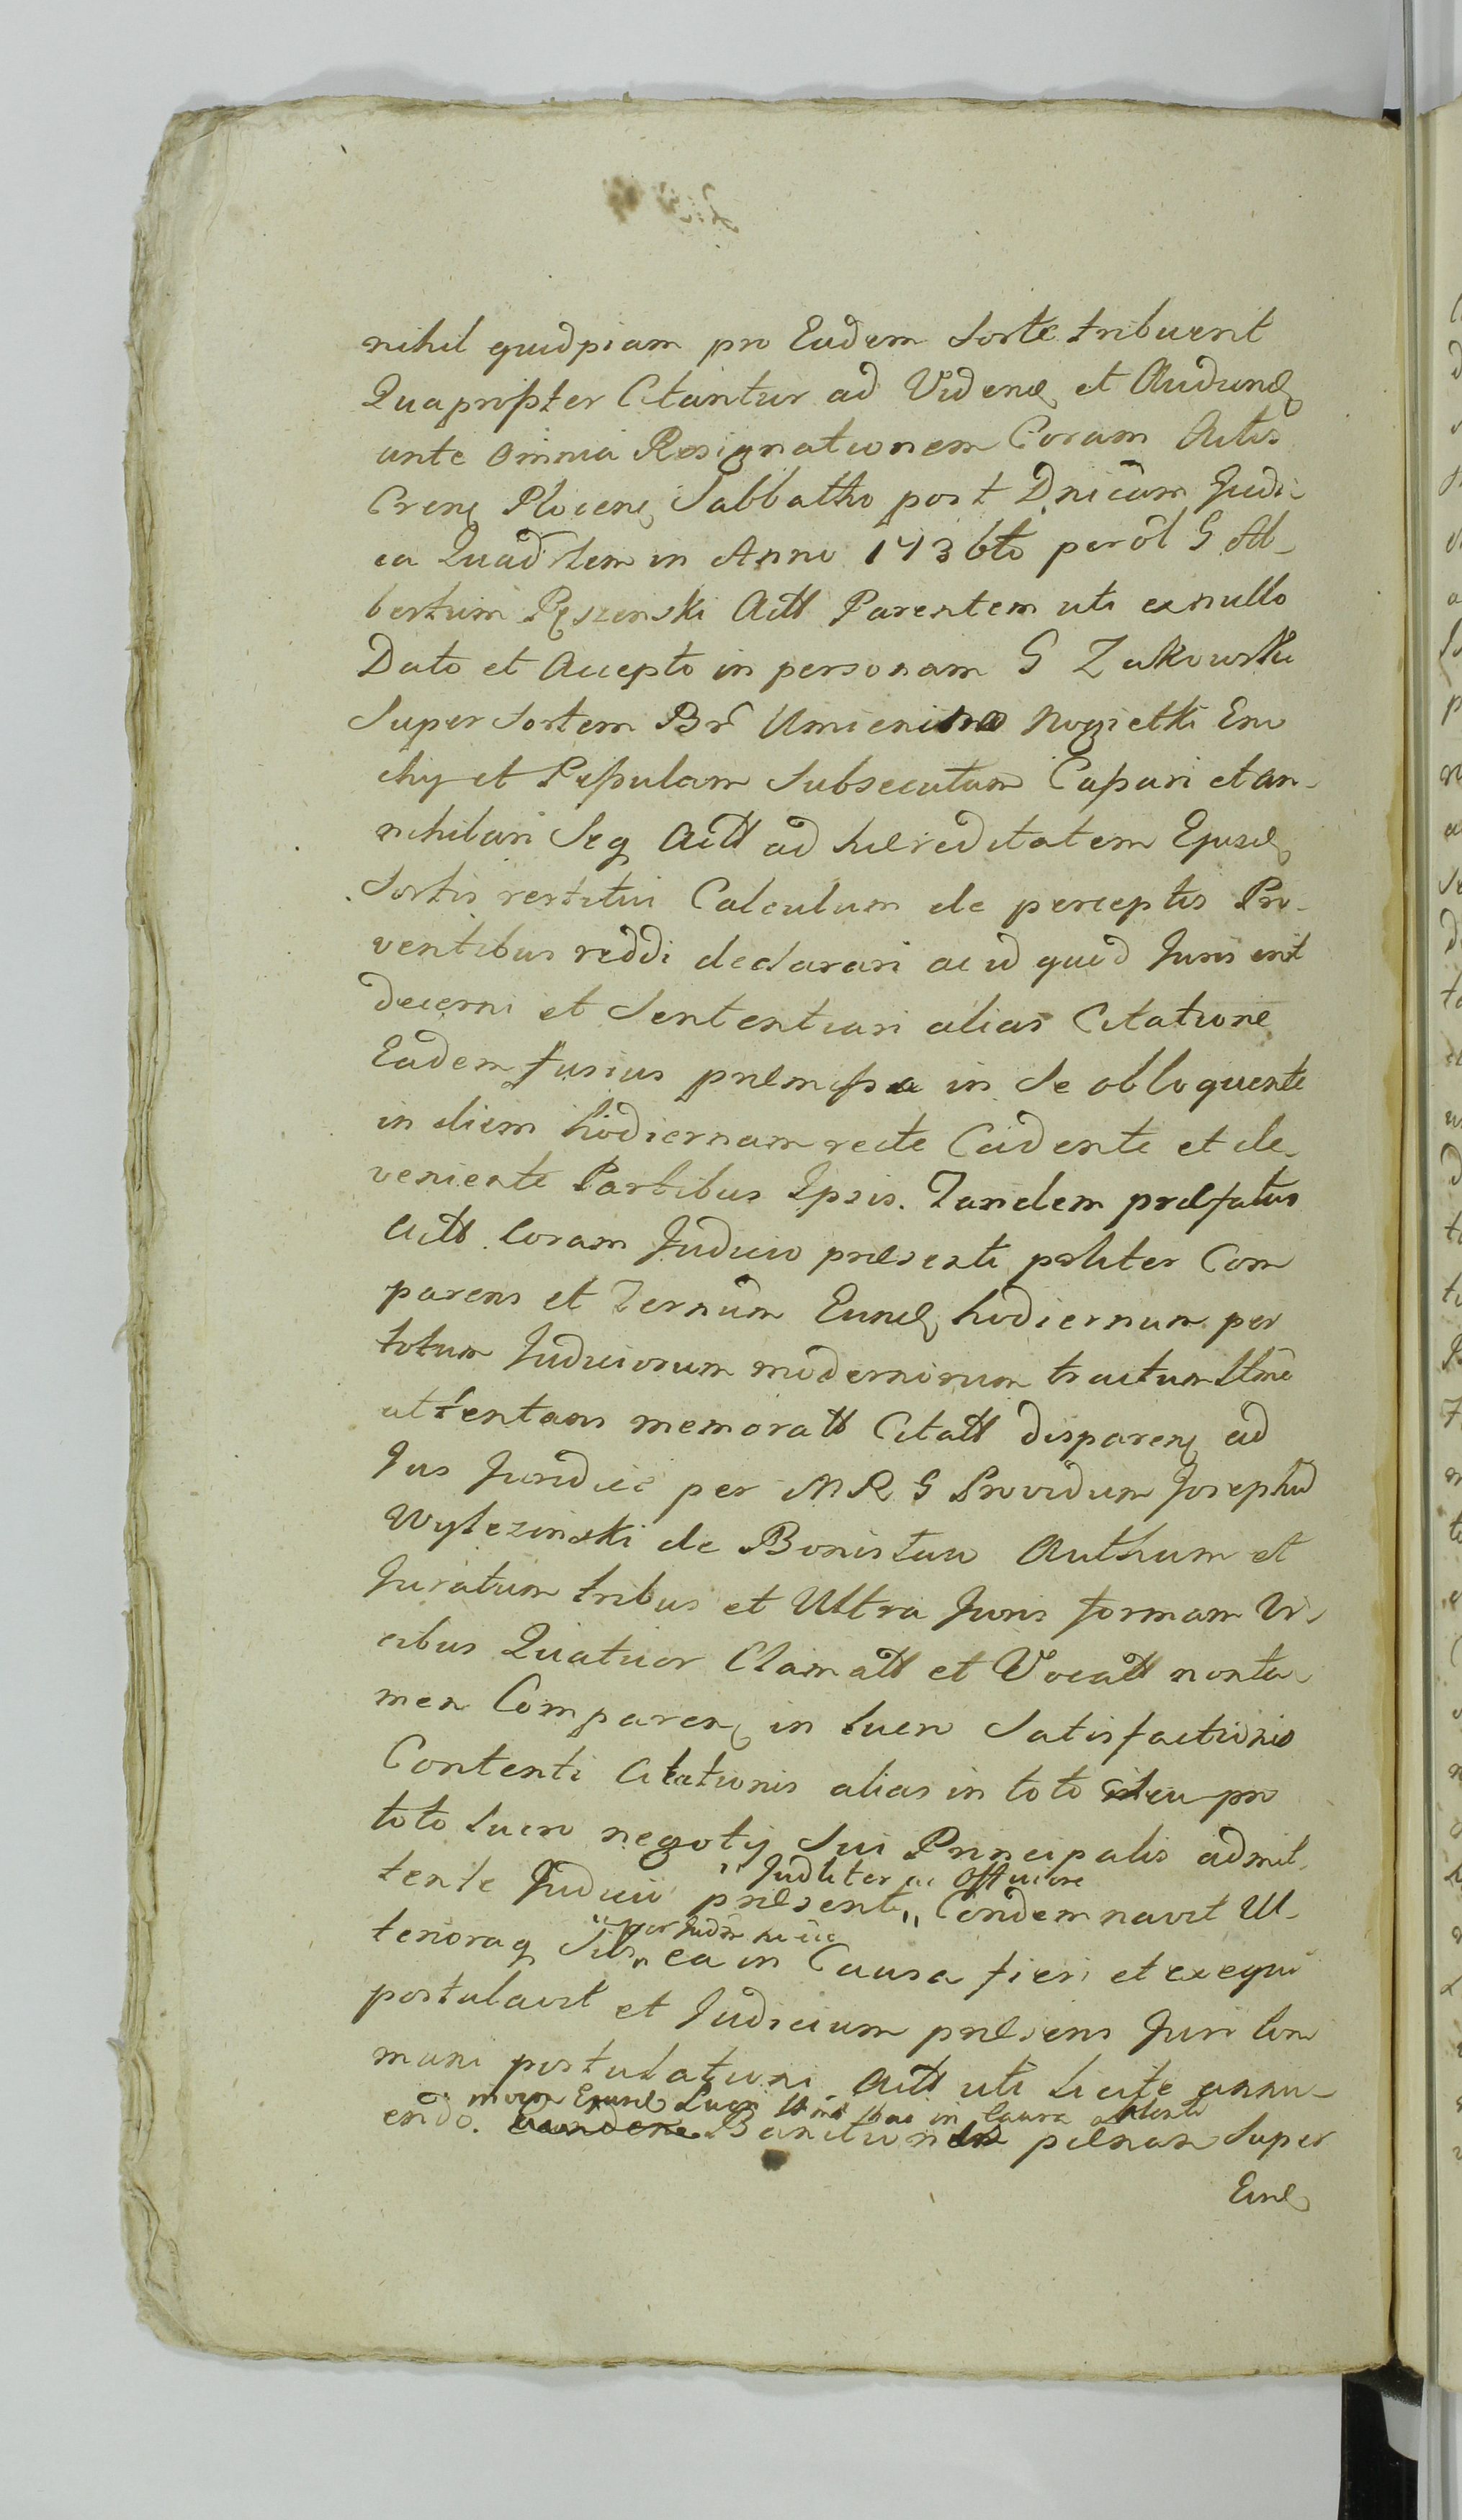 nihil quidpiam pro Eadem Sorte tribuerit
Quapropter Citantur ad Videnđ et Audienđ
ante omnia Resignationem Coram Actis
Cren Plocen Sabbatho post Dnicam Judi
ca Quadlem in Anno 1736to per ol G Al-
bertum Ryszenski Actt Parentem uti ex nullo
Dato et Accepto in personam G Zukowski
Super Sortem Br Umienino Nogietki Em
chy et Pessulam Subsecutam Cassari et an-
nihilari Seq Actt ad haereditatem Ejusd
Sortis restitui Calculum de perceptis Pro-
ventibus reddi declarari ac id quid Juris erit
decerni et Sententiari alias Citatione
Eadem fusius praemissa in Se obloquente
in diem hodiernam recte Cadente et de
veniente Partibus Ipsis. Tandem praefatus
Actt Coram Judicio praesenti psliter Com
parens et Ternum Eund hodiernum per
totum Judiciorum modernorum tractum ltme
attentans memoratt Citatt disparen ad
Jus Juridice per MR G Providum Josephũ
Wylezinski de Bonislaw Authum et
Juratum tribus et Ultra Juris formam Vi-
cibus Quatuor Clamatt et Vocatt nonta-
men Comparen in lucro Satisfactionis
Contenti Citationis alias in toto seu pro
toto lucro negotij Sui Principalis admit-
tente Judicio praesenti " Judliter ac Officiose Condemnavit Ul-
terioraq Sibi " ea in Causa fieri et exequi
postulavit et Judicium praesens Juri Com
muni postulationi Actt uti licite annu-
endo. Banitionem paenam Super
Eund